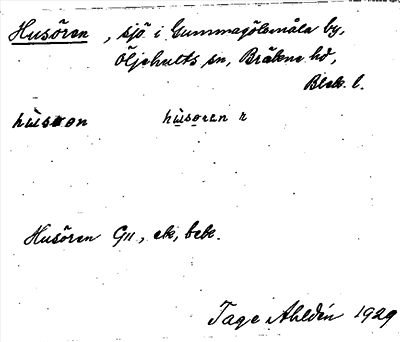 Husören, sjö i Gummagölsmåla by,
Öljehults sn, Bräkne hd,
Blek. l.
husören r
Husören GII, ek, bebk.
Tage Ahldén 1929